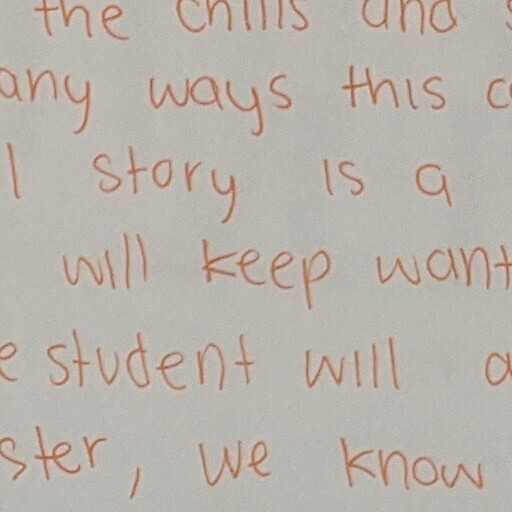 the chills and
any ways this
story is a
will keep want
student will
ster, we know